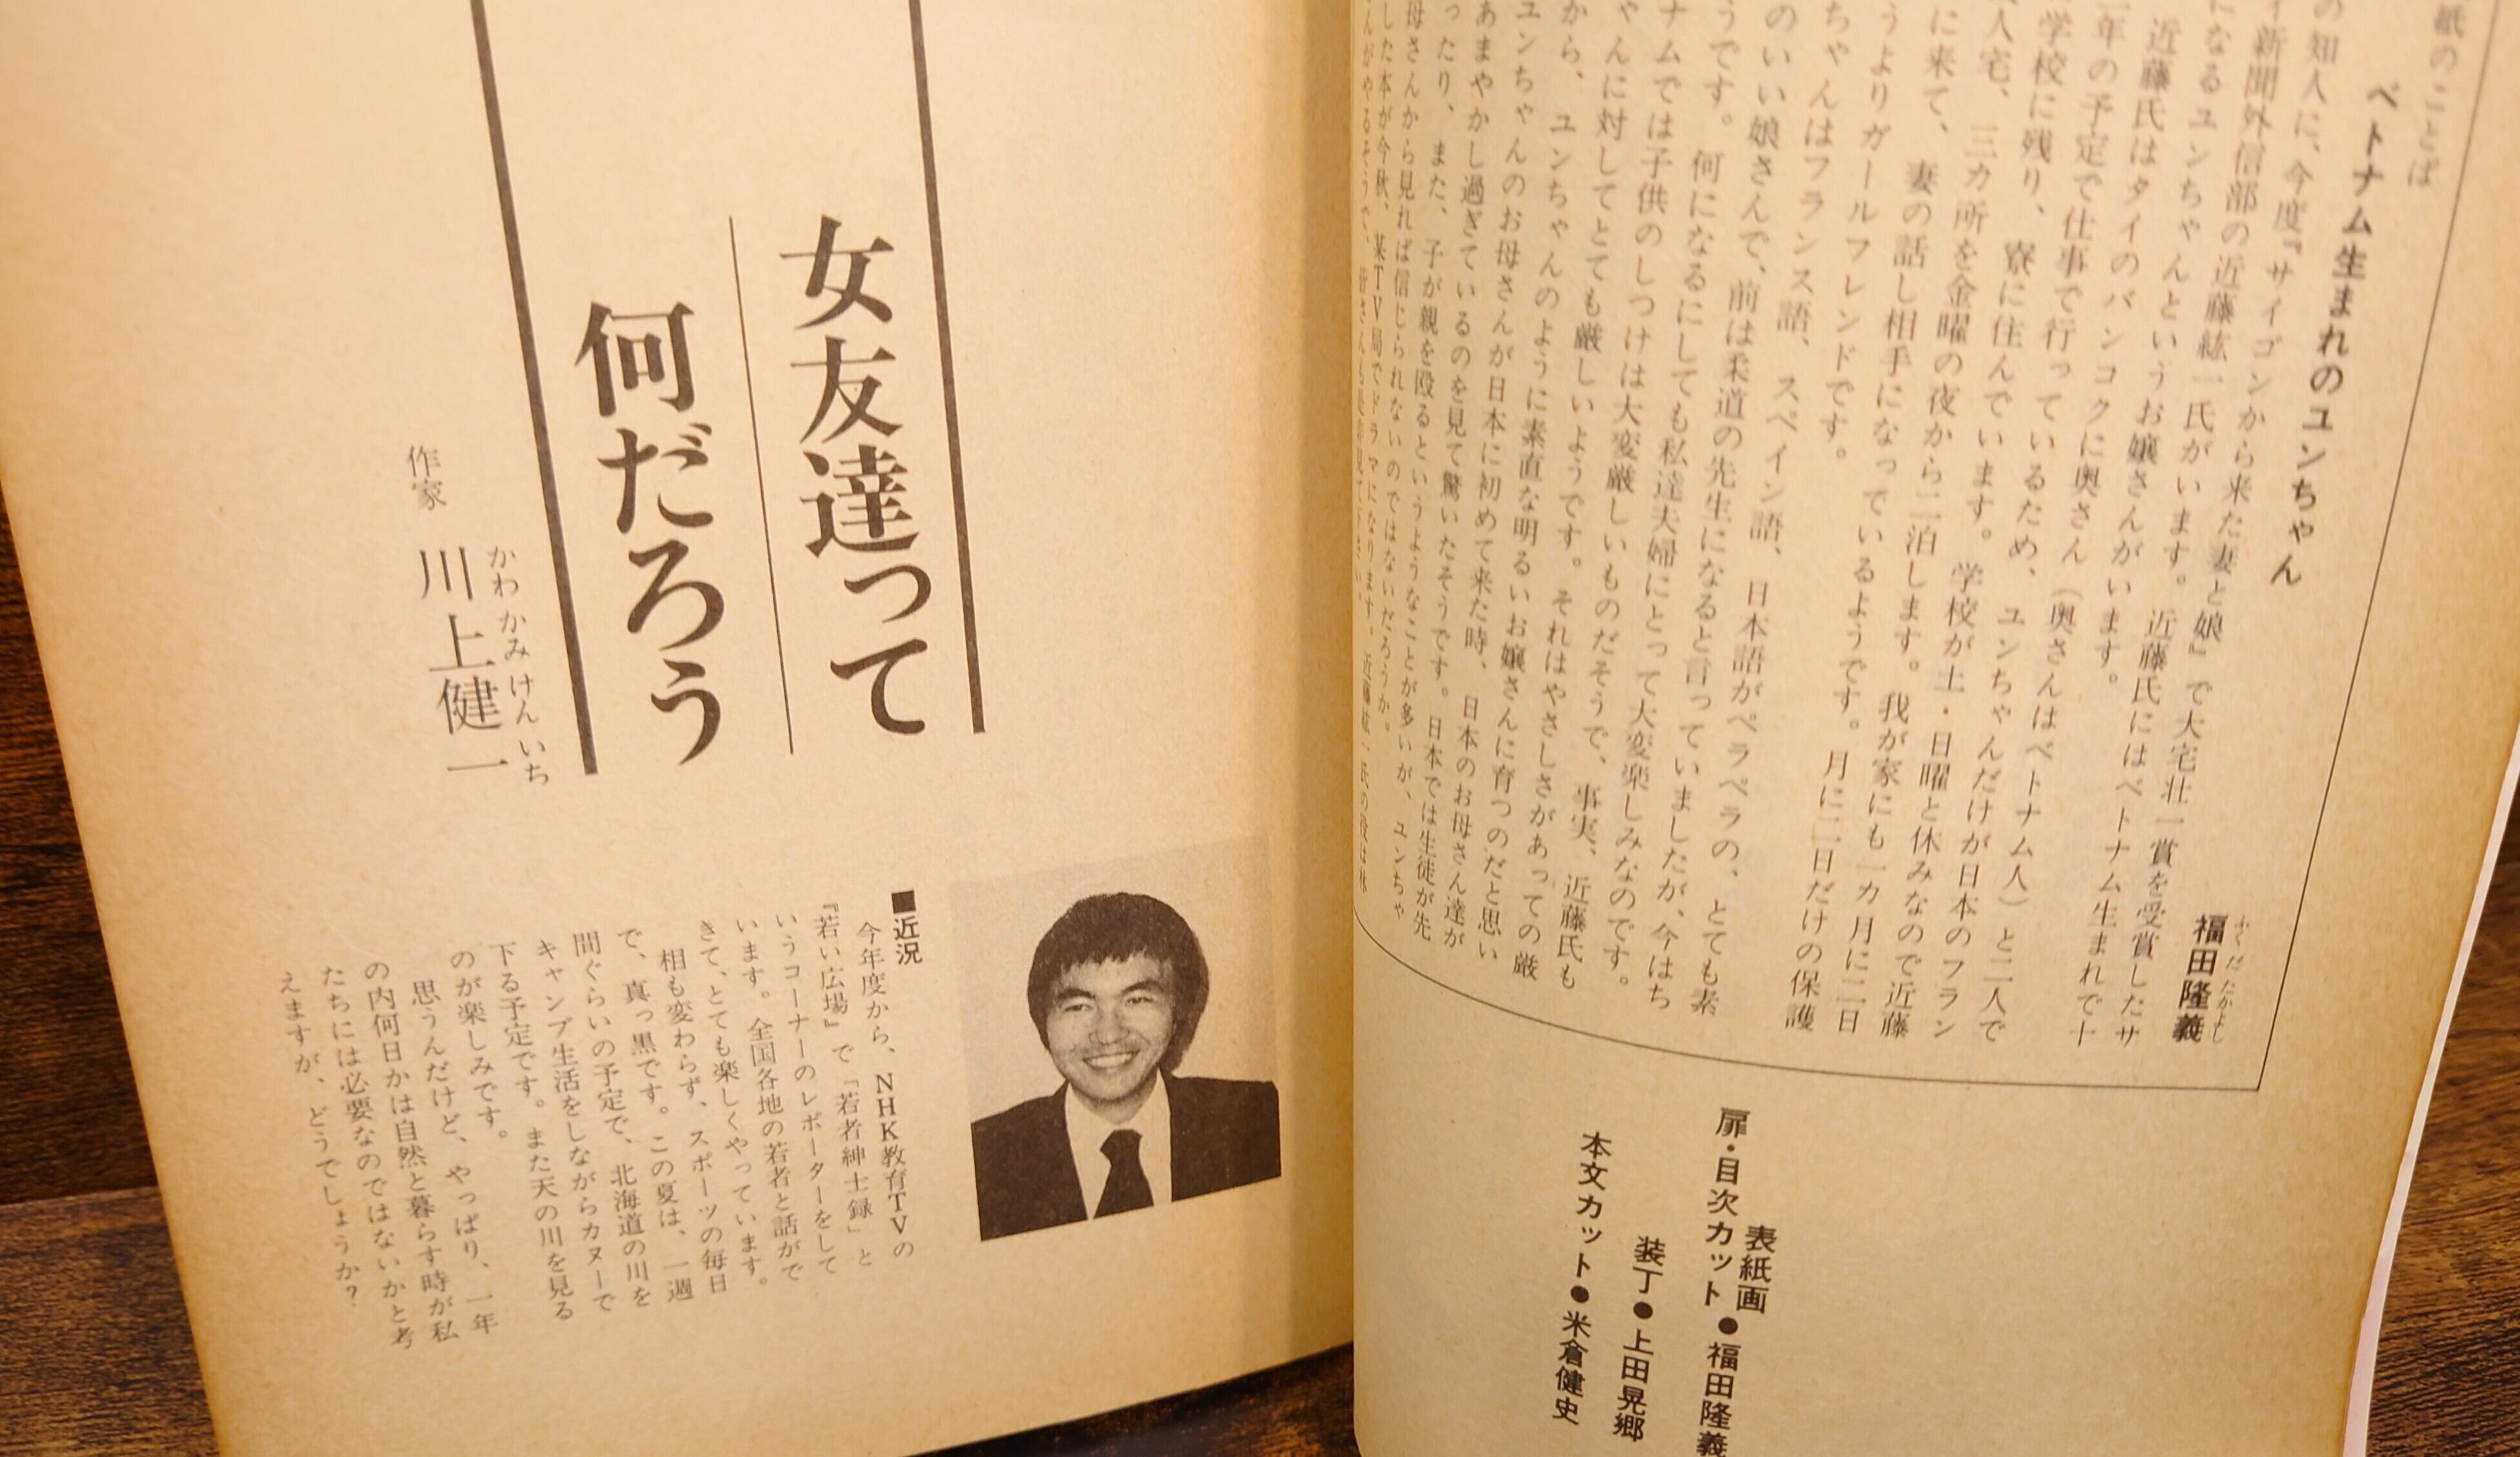 紙のことば
ベトナム生まれのユンちゃん
福田隆義
ふくだたかよし
の知人に、今度『サイゴンから来た妻と娘』で大宅壮一賞を受賞したサ
イ新聞外信部の近藤紘一氏がいます。近藤氏にはベトナム生まれで十
になるユンちゃんというお嬢さんがいます。
近藤氏はタイのバンコクに奥さん（奥さんはベトナム人）と二人で
年の予定で仕事で行っているため、ユンちゃんだけが日本のフラン
学校に残り、寮に住んでいます。学校が土・日曜と休みなので近藤
人宅、三カ所を金曜の夜から二泊します。我が家にも一カ月に二日
に来て、妻の話し相手になっているようです。月に二日だけの保護
うよりガールフレンドです。
ちゃんはフランス語、スペイン語、日本語がペラペラの、とても素
のいい娘さんで、前は柔道の先生になると言っていましたが、今はち
うです。何になるにしても私達夫婦にとって大変楽しみなのです。
ナムでは子供のしつけは大変厳しいものだそうで、事実、近藤氏も
ゃんに対してとても厳しいようです。それはやさしさがあっての厳
から、ユンちゃんのように素直な明るいお嬢さんに育つのだと思い
ユンちゃんのお母さんが日本に初めて来た時、日本のお母さん達が
あまやかし過ぎているのを見て驚いたそうです。日本では生徒が先
ったり、また、子が親を殴るというようなことが多いが、ユンちゃ
母さんから見れば信じられないのではないだろうか。
した本が今秋、某TV局でドラマになります。近藤紘一氏の役は林
表紙画
扉・目次カット●福田隆義
装丁●上田晃郷
本文カット●米倉健史
女友達って
何だろう
作家 川上健一
かわかみけんいち
■近況
今年度から、NHK教育TVの
『若い広場』で「若者紳士録」と
いうコーナーのレポーターをして
います。全国各地の若者と話がで
きて、とても楽しくやっています。
相も変わらず、スポーツの毎日
で、真っ黒です。この夏は、一週
間ぐらいの予定で、北海道の川を
キャンプ生活をしながらカヌーで
下る予定です。また天の川を見る
のが楽しみです。
思うんだけど、やっぱり、一年
の内何日かは自然と暮らす時が私
たちには必要なのではないかと考
えますが、どうでしょうか？